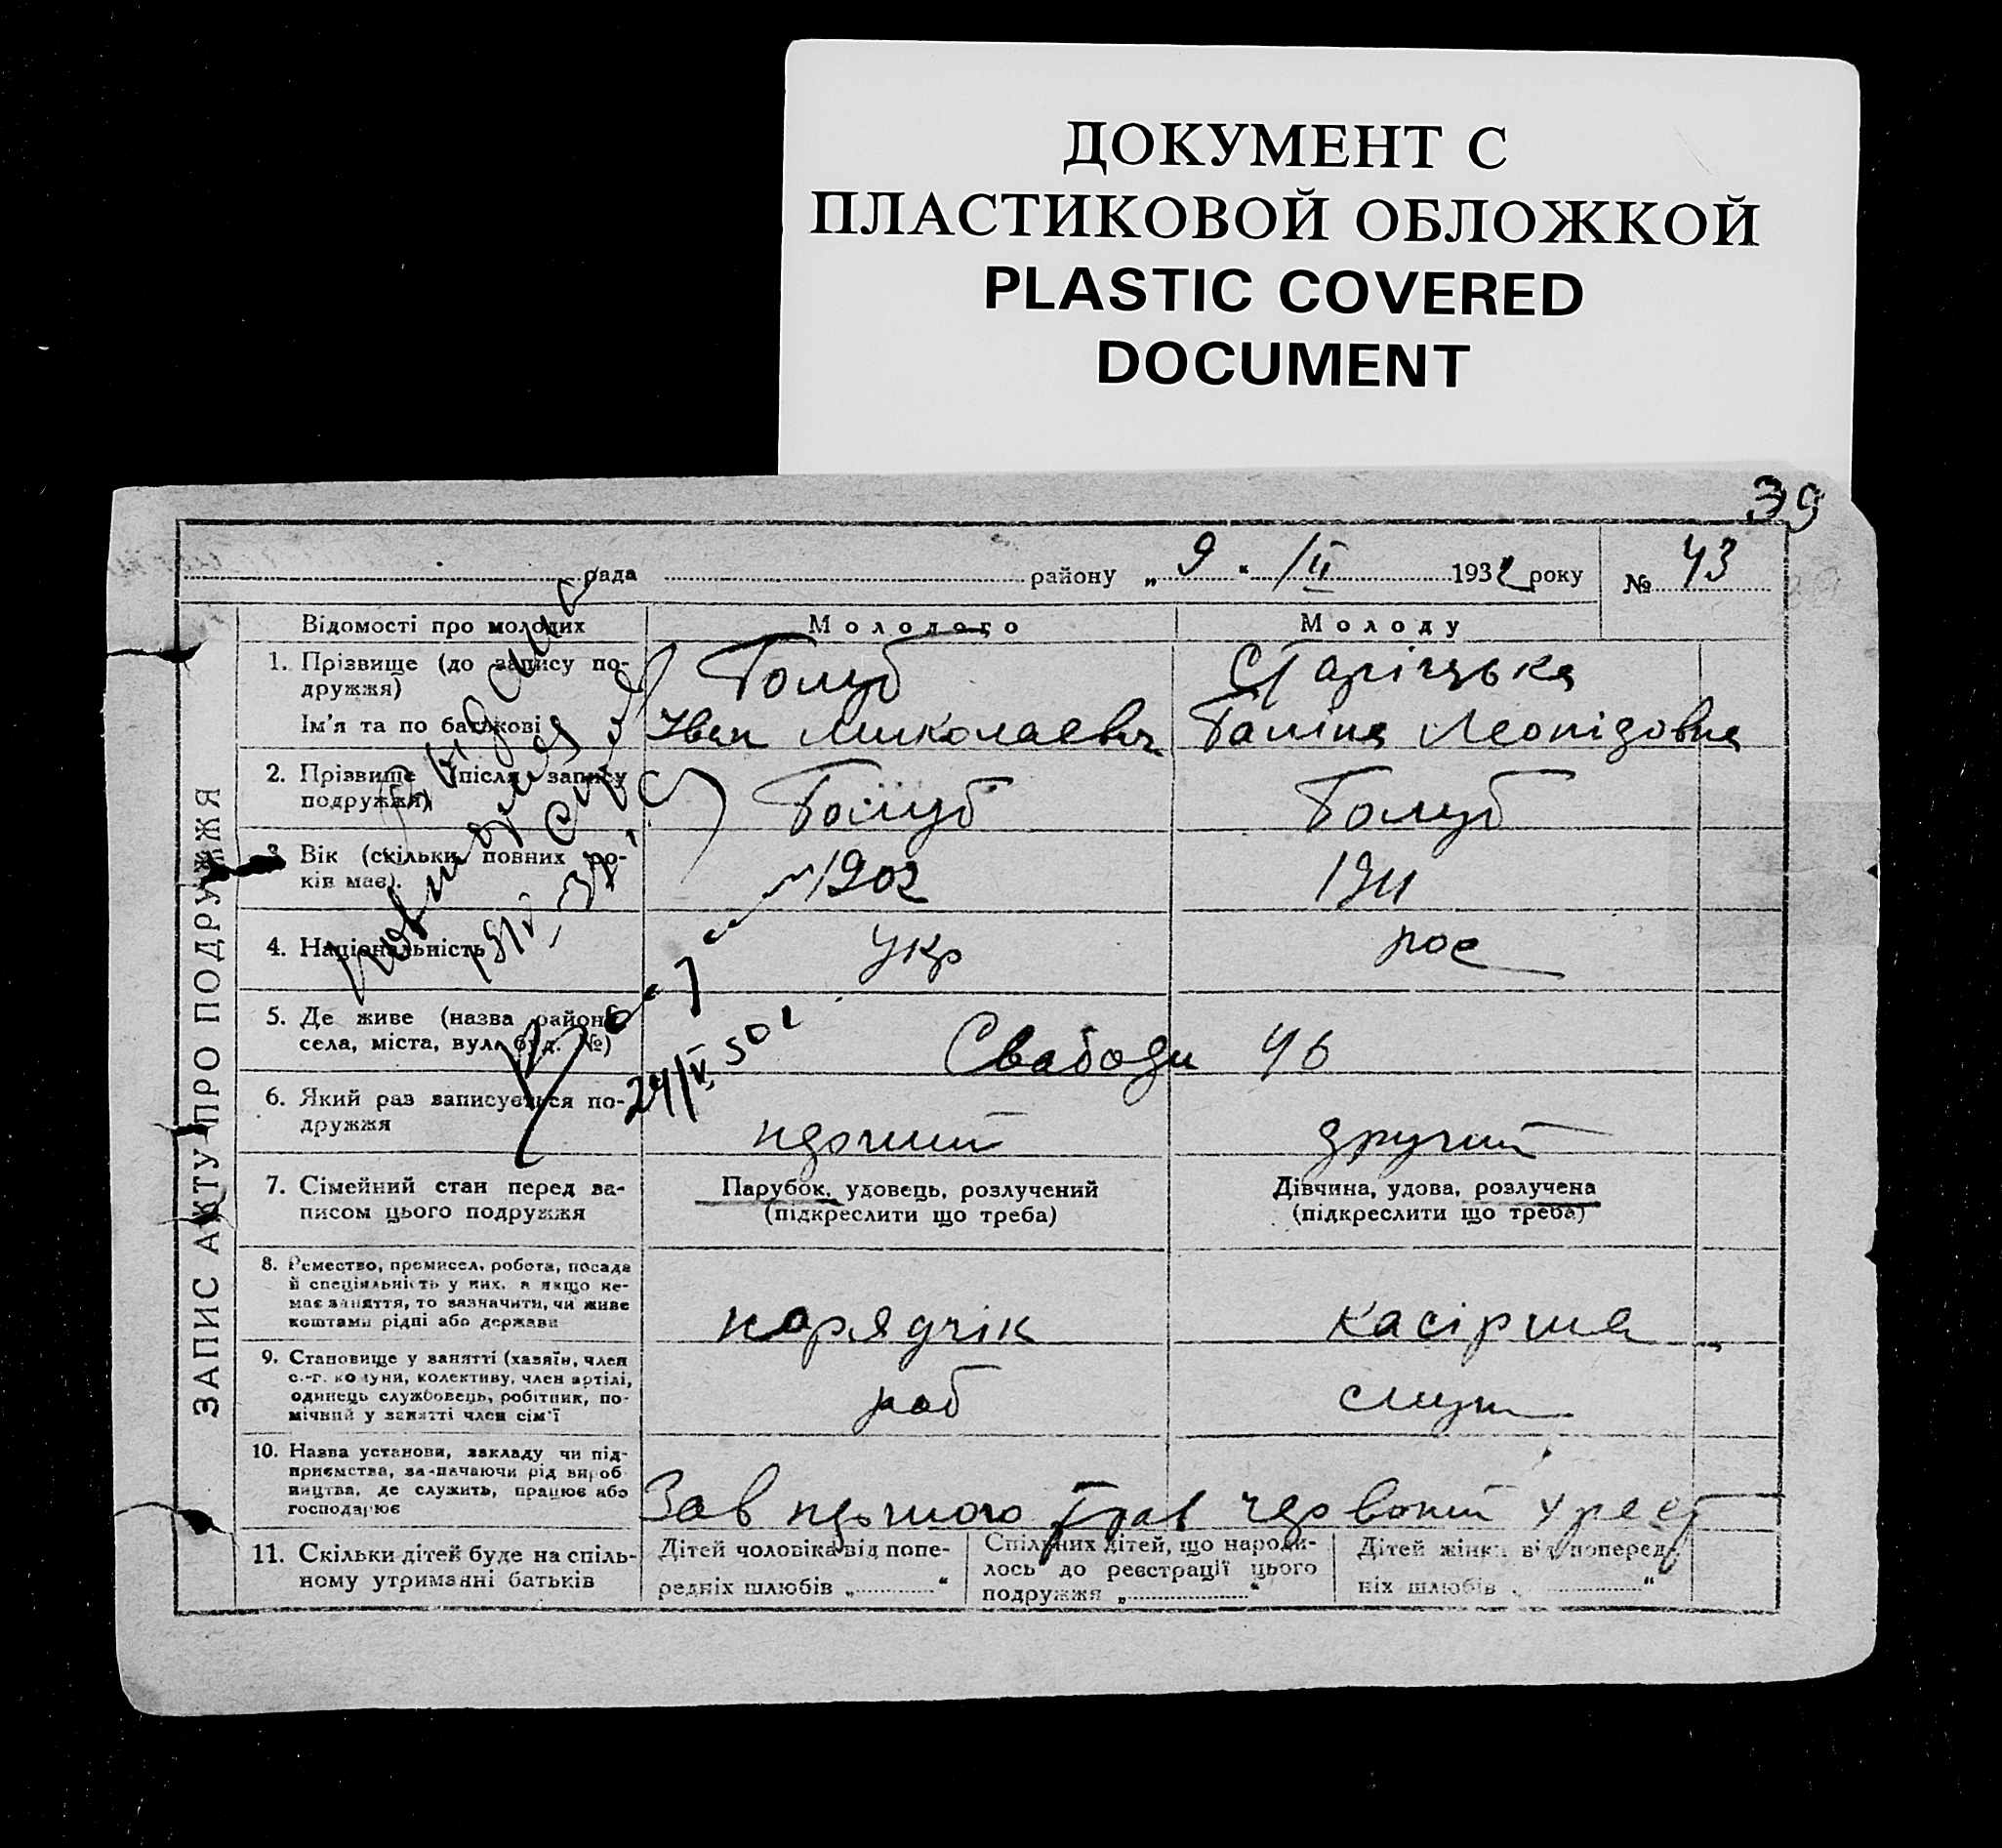 ДОКУМЕНТ С
ПЛАСТИКОВОЙ ОБЛОЖКОЙ
PLASTIC COVERED
DOCUMENT
39
рада району „9“ III 1932 року № 43
ЗАПИС АКТУ ПРО ПОДРУЖЖЯ
Відомості про молодих Молодого Молоду
1. Прізвище (до запису по-
дружжя) Голуб Старіцька
Ім’я та по батькові Іван Миколаевич Галіна Леонідовна
2. Прізвище (після запису
подружжя) Голуб Голуб
3. Вік (скільки повних ро-
ків має). 1902 1911
4. Національність укр рос
5. Де живе (назва району
села, міста, вул. буд. №) Свабоди 46
24/V 50
6. Який раз записується по-
дружжя перший другий
7. Сімейний стан перед за-
писом цього подружжя
Парубок, удовець, розлучений
(підкреслити що треба)
Дівчина, удова, розлучена
(підкреслити що треба)
8. Ремество, промисел, робота, посада
й спеціяльність у них, а якщо не-
має заняття, то зазначити, чи живе
коштами рідні або держави
нарядчік касірша
9. Становище у занятті (хазяїн, член
с.-г. комуни, колективу, член артілі,
одинець службовець, робітник, по-
мічний у занятті член сім’ї
роб служ
10. Назва установи, закладу чи під-
приємства, зазначаючи рід вироб
ництва, де служить, працює або
господарює
Зав першого Трав червоний хрест
11. Скільки дітей буде на спіль-
ному утриманні батьків
Дітей чоловіка від попе-
редніх шлюбів „ “
Спільних дітей, що народи-
лось до реєстрації цього
подружжя „ “
Дітей жінки від поперед-
ніх шлюбів „ “